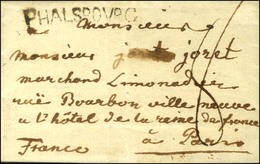 PHALSBOURG
Monsieur
Monsieur joret
marchand Limonadier
ruë Bourbon ville neuve
a l'hôtel de la reine de france
à Paris
France